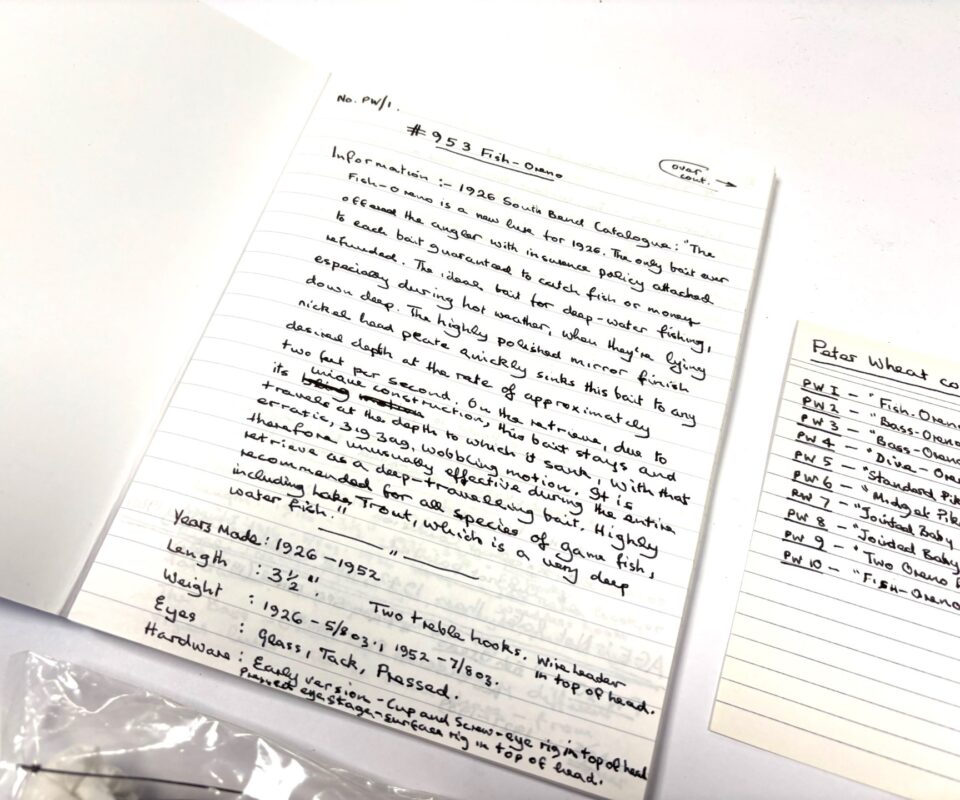 No. PW/1.
# 953 Fish-Oreno
over cont. →
Information :- 1926 South Bend Catalogue: "The
Fish-Oreno is a new lure for 1926. The only bait ever
offered the angler with insurance policy attached
to each bait guaranteed to catch fish or money
refunded. The ideal bait for deep-water fishing,
especially during hot weather, when they're lying
down deep. The highly polished mirror finish
nickel head plate quickly sinks this bait to any
desired depth at the rate of approximately
two feet per second. On the retrieve, due to
its unique construction, this bait stays and
travels at the depth to which it sank, with that
erratic, zig zag, wobbling motion. It is
therefore unusually effective during the entire
retrieve as a deep-travelling bait. Highly
recommended for all species of game fish,
including Lake Trout, which is a very deep
water fish."
"
Years Made: 1926 - 1952
Length : 3 1/2". Two treble hooks. Wire leader
Weight : 1926 - 5/8oz., 1952 - 7/8oz. in top of head.
Eyes : Glass, Tack, Pressed.
Hardware: Early version - Cup and Screw-eye rig in top of head
Pressed eye stage - surface rig in top of head.
Peter Wheat co
PW 1 - "Fish-Oreno
PW 2 - "Bass-Oreno
PW 3 - "Bass-Oreno
PW 4 - "Dive-Ore
PW 5 - "Standard Pik
PW 6 - "Midget Pike
PW 7 - "Jointed Baby
PW 8 - "Jointed Baby
PW 9 - "Two Oreno
PW 10 - "Fish-Oreno